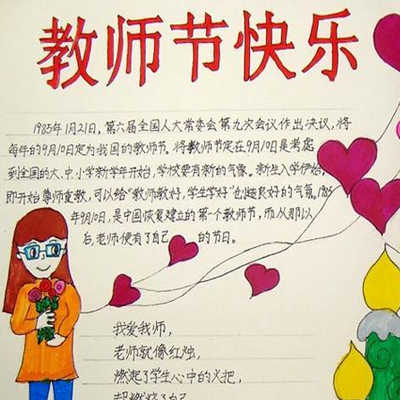 教师节快乐
1985年1月21日，第六届全国人大常委会第九次会议作出决议，将
每年的9月10日定为我国的教师节。将教师节定在9月10日是考虑
到全国的大、中、小学新学年开始，学校要有新的气像。新生入学伊始，
即开始尊师重教，可以给“教师教好，学生学好”创造良好的气氛。1985
年9月10日，是中国恢复建立的第一个教师节，而从那以
后，老师便有了自己的节日。
我爱我师，
老师就像红烛，
燃起了学生心中的火把，
却燃烧了自己